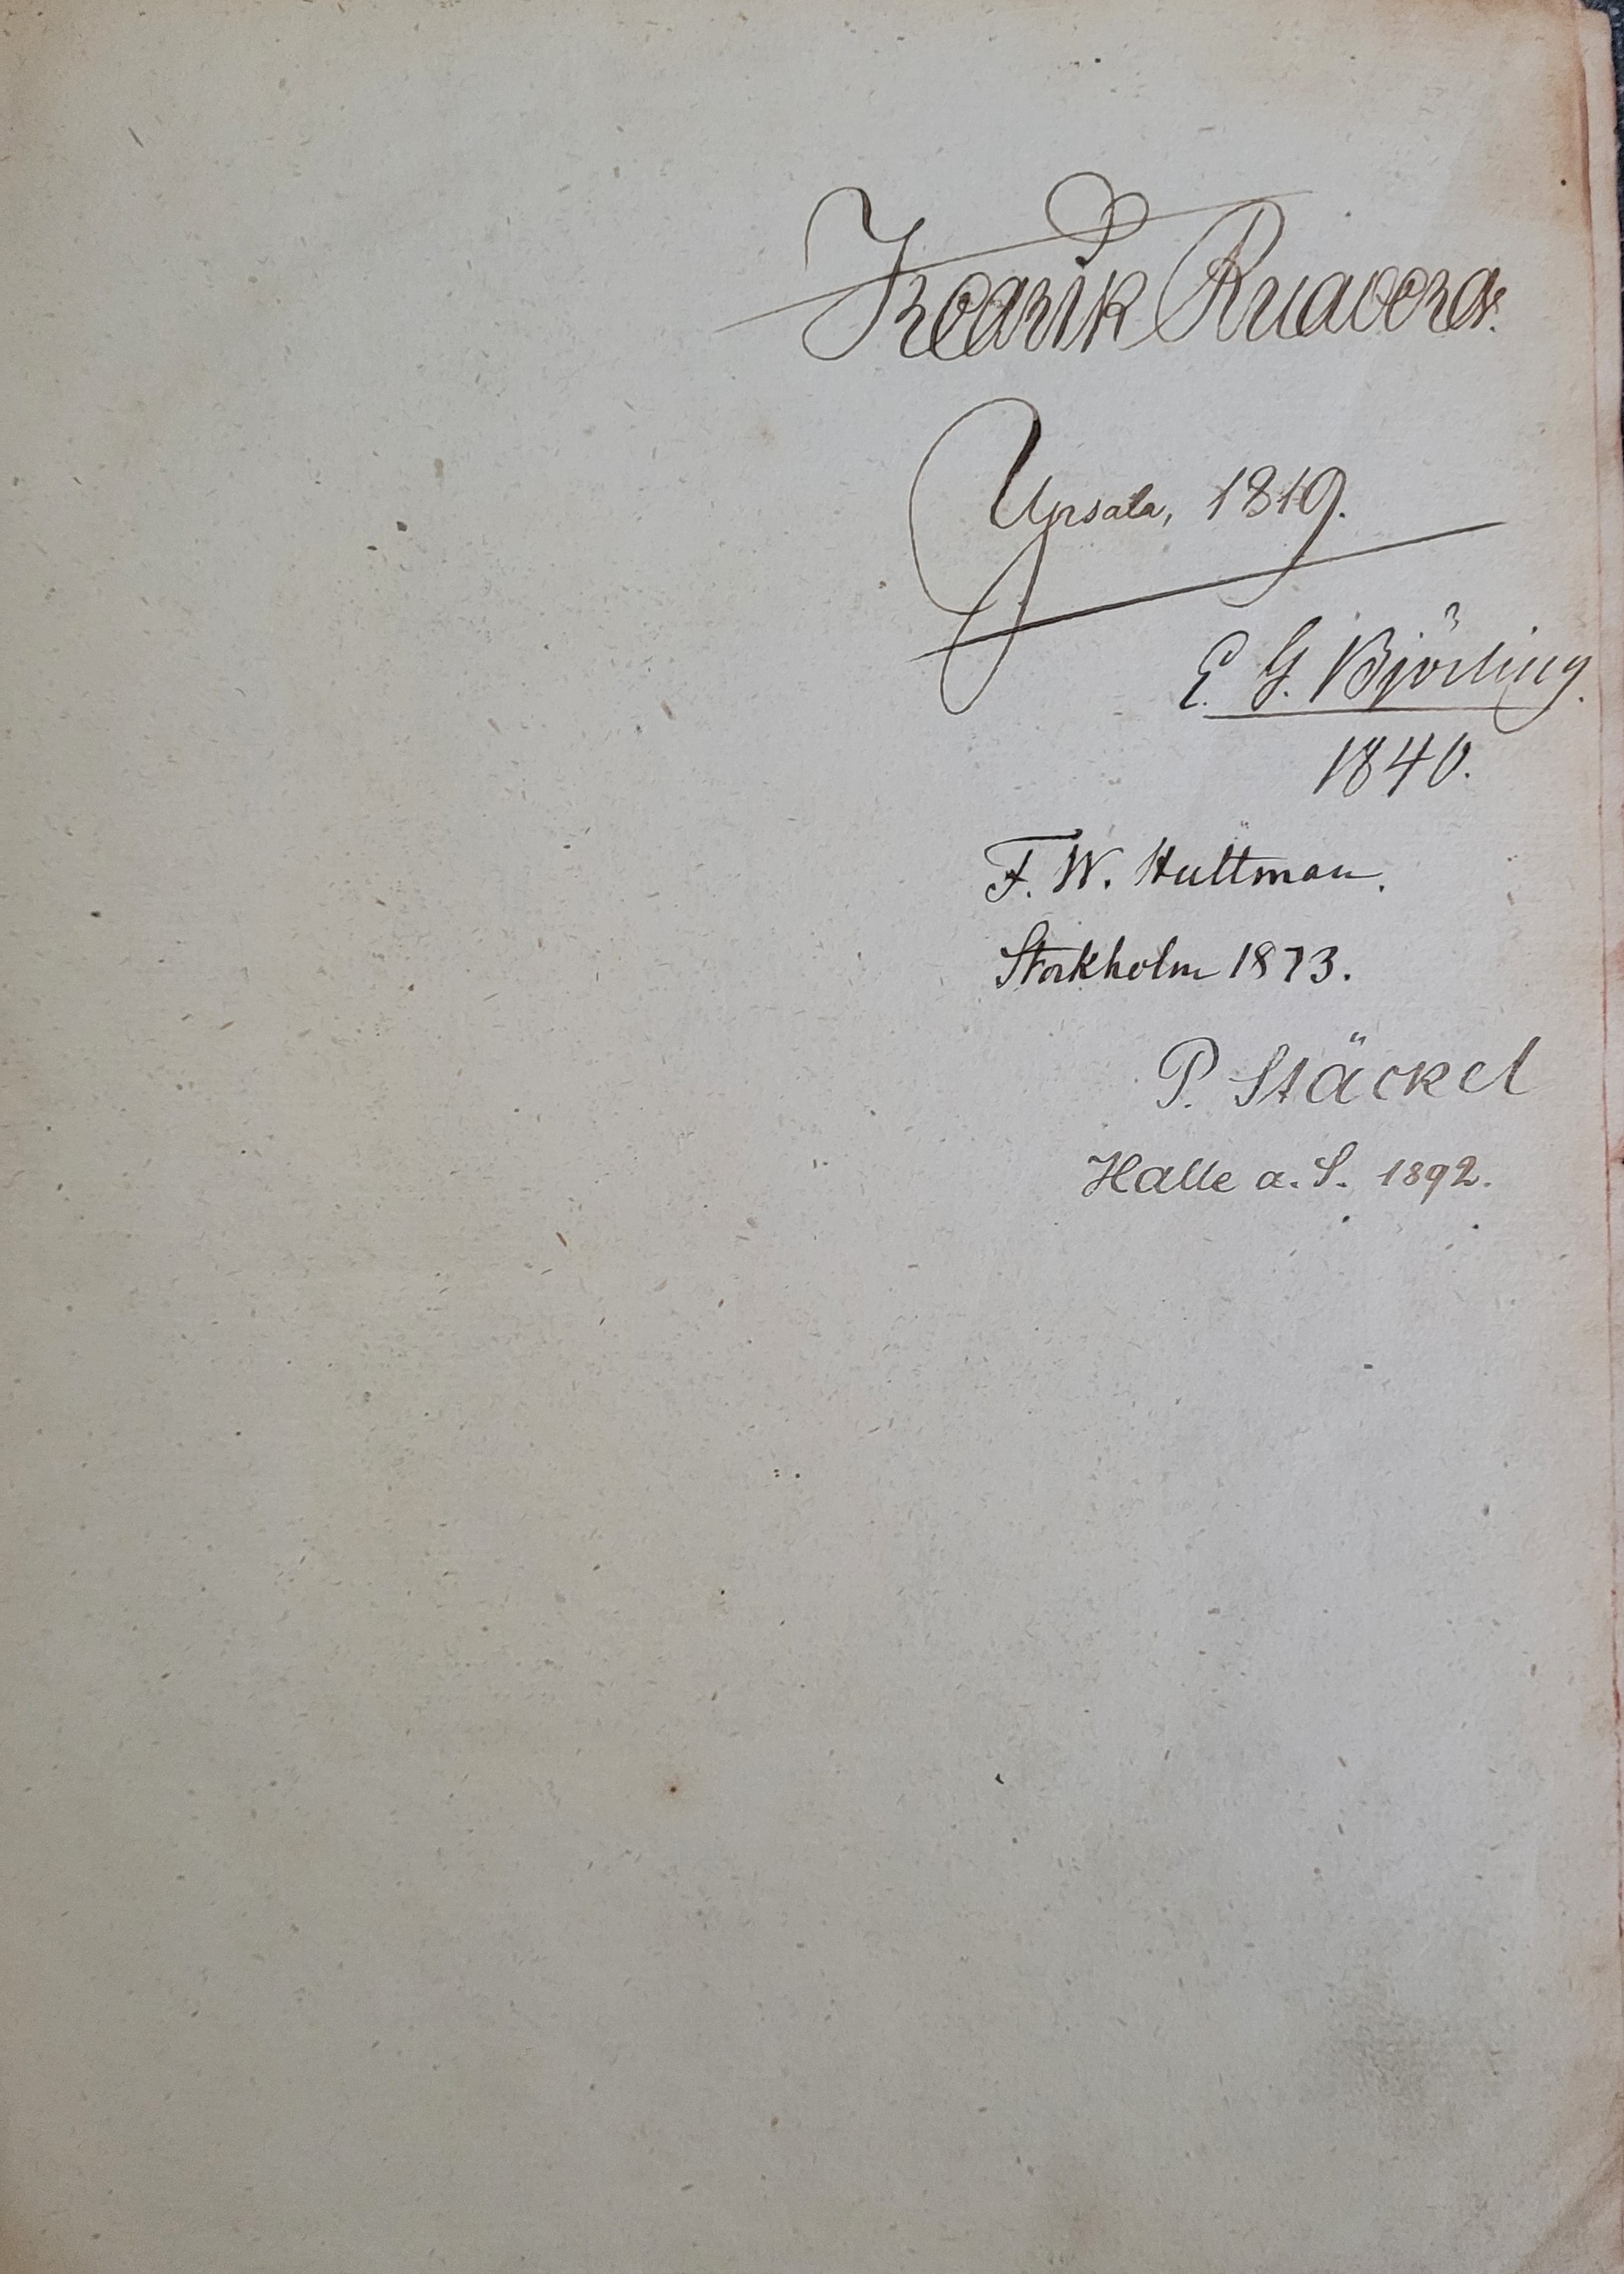 Fredrik Rudberg.
Upsala, 1819.
E. G. Björling.
1840.
F. W. Hultman.
Stockholm 1873.
P. Stäckel
Halle a. S. 1892.